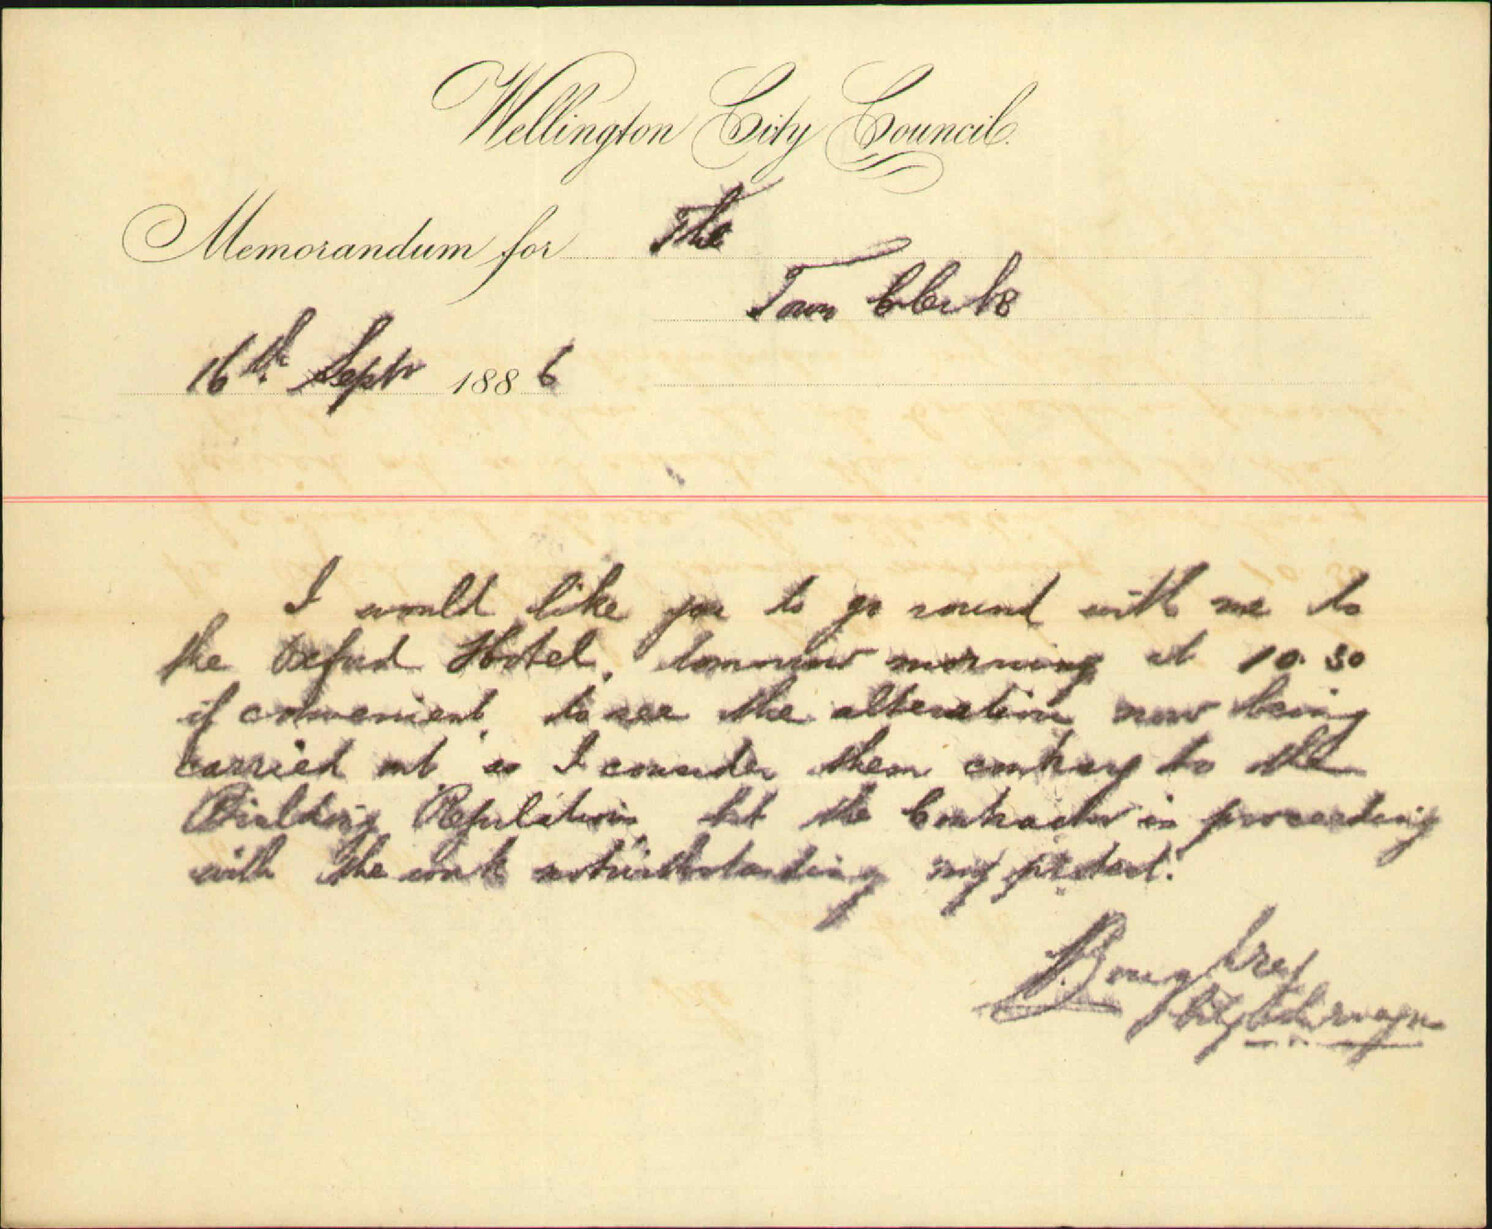 Wellington City Council.
Memorandum for The
Town Clerk
16th Sept 1886
I would like you to go round with me to
the Oxford Hotel, tomorrow morning at 10.30
if convenient, to see the alterations now being
carried out as I consider them contrary to the
Building Regulations, but the Contractor is proceeding
with the work notwithstanding my protest.
City Surveyor